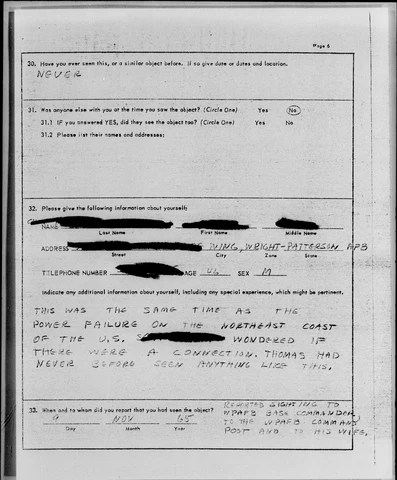 Page 6
30. Have you ever seen this, or a similar object before. If so give date or dates and location.
NEVER
31. Was anyone else with you at the time you saw the object? (Circle One) Yes No
31.1 IF you answered YES, did they see the object too? (Circle One) Yes No
31.2 Please list their names and addresses:
32. Please give the following information about yourself:
NAME
Last Name First Name Middle Name
ADDRESS WING, WRIGHT-PATTERSON AFB
Street City Zone State
TELEPHONE NUMBER AGE 46 SEX M
Indicate any additional information about yourself, including any special experience, which might be pertinent.
THIS WAS THE SAME TIME AS THE
POWER FAILURE ON THE NORTHEAST COAST
OF THE U.S. WONDERED IF
THERE WERE A CONNECTION. THOMAS HAD
NEVER BEFORE SEEN ANYTHING LIKE THIS.
33. When and to whom did you report that you had seen the object?
9 NOV 65
Day Month Year
REPORTED SIGHTING TO
WPAFB BASE COMMANDER,
TO THE WPAFB COMMAND
POST AND TO HIS WIFE.